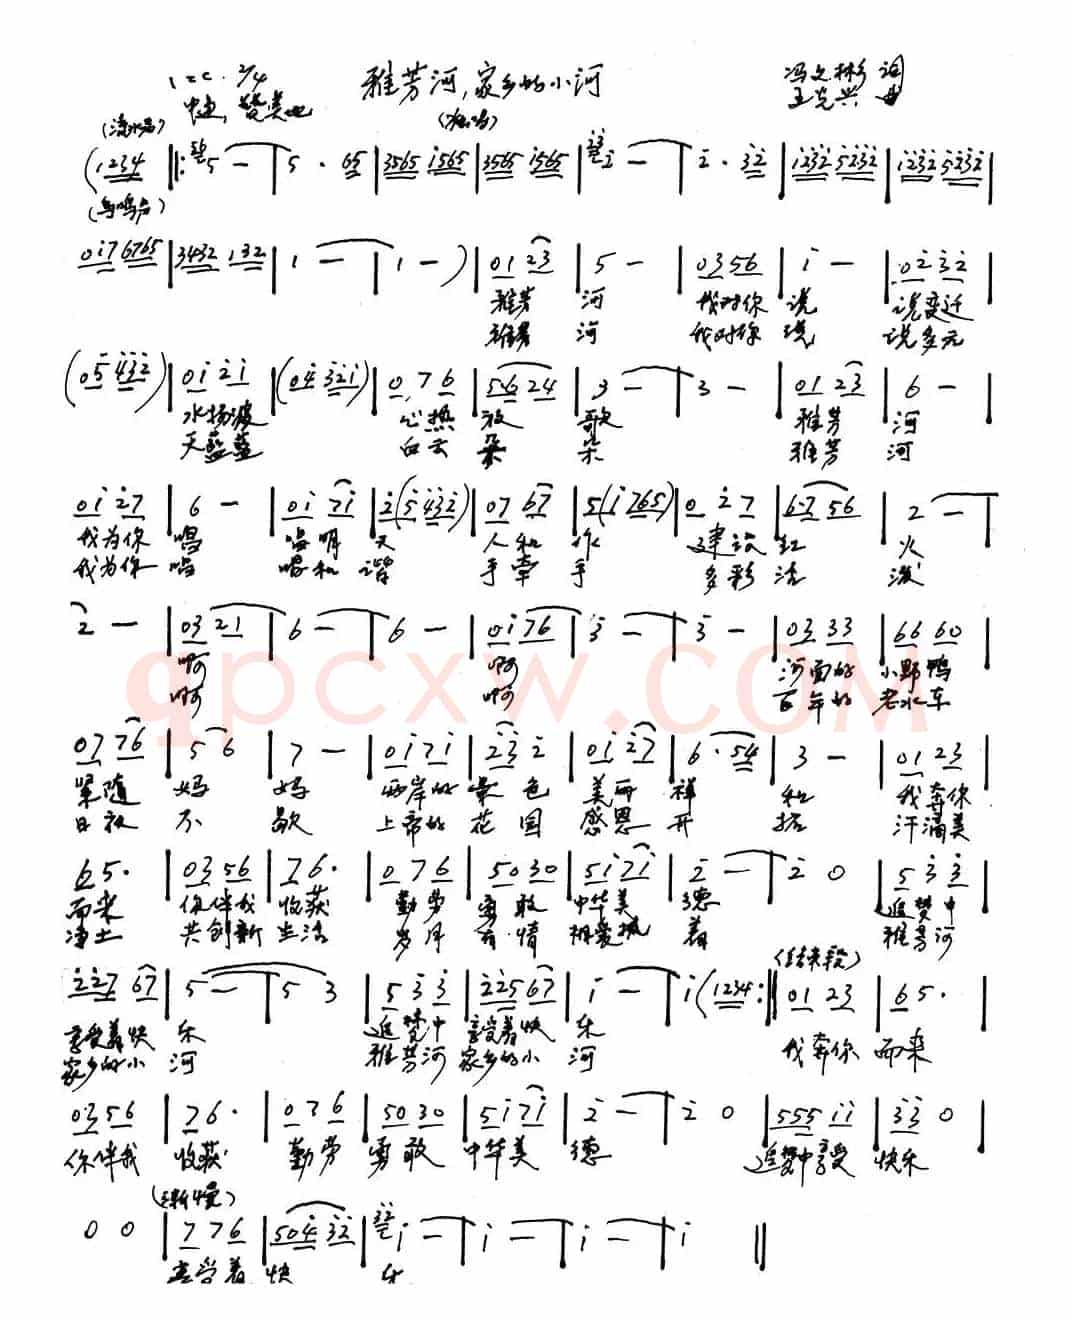 1=C. 2/4 雅芳河,家乡的小河 冯文彬 词
中速,赞美地 王克兴 曲
(流水声) (独唱)
(1234 |: 5 — | 5 . 65 | 3565 i565 | 3565 i565 | i — | 2 . 32 | 1232 5232 | 1232 5232 |
(鸟鸣声)
0i7 6765 | 3432 132 | 1 — | 1 — ) | 01 23 | 5 — | 03 56 | i — | 02 32 |
雅芳 河 我对你 说 说变迁
雅芳 河 我对你 说 说多元
(05 432) | 0i 2i | (04 32i) | 0 76 | 56 24 | 3 — | 3 — | 01 23 | 6 — |
水扬波 心热 放 歌 雅芳 河
天蓝蓝 白云 朵 朵 雅芳 河
0i 27 | 6 — | 0i 7i | 2 (5 432) | 07 67 | 5 (i 765) | 0 27 | 67 56 | 2 — |
我为你 唱 唱明 天 人和 作 建设 红 火
我为你 唱 唱和 谐 手牵 手 多彩 活 泼
2 — | 03 21 | 6 — | 6 — | 0i 76 | 3 — | 3 — | 03 33 | 66 60 |
啊 啊 河面的 小野鸭
啊 啊 百年的 老水车
qpcxw.COM
07 76 | 5 6 | 7 — | 0i 7i | 23 2 | 0i 27 | 6 . 54 | 3 — | 01 23 |
紧随 妈 妈 两岸的 景 色 美丽 祥 和 我奔你
日夜 不 歇 上帝的 花 园 感恩 开 拓 汗滴美
65. | 03 56 | 76. | 0 76 | 50 30 | 5i 7i | 2 — | 2 0 | 5 33 |
而来 你伴我 收获 勤劳 勇敢 中华美 德 追梦中
净土 共创新 生活 岁月 有情 相爱 着 雅芳河
227 67 | 5 — | 5 3 | 5 33 | 225 67 | i — | i (1234 :|| 01 23 | 65. |
(结束段)
享受着快 乐 追梦中 享受着快 乐 我奔你 而来
家乡的小 河 雅芳河 家乡的小 河
03 56 | 76. | 0 76 | 50 30 | 5i 7i | 2 — | 2 0 | 555 ii | 33 0 |
你伴我 收获 勤劳 勇敢 中华美 德 追梦中享受 快乐
(渐慢)
0 0 | 7 76 | 504 32 | i — | i — | i — | i ||
享受着 快 乐